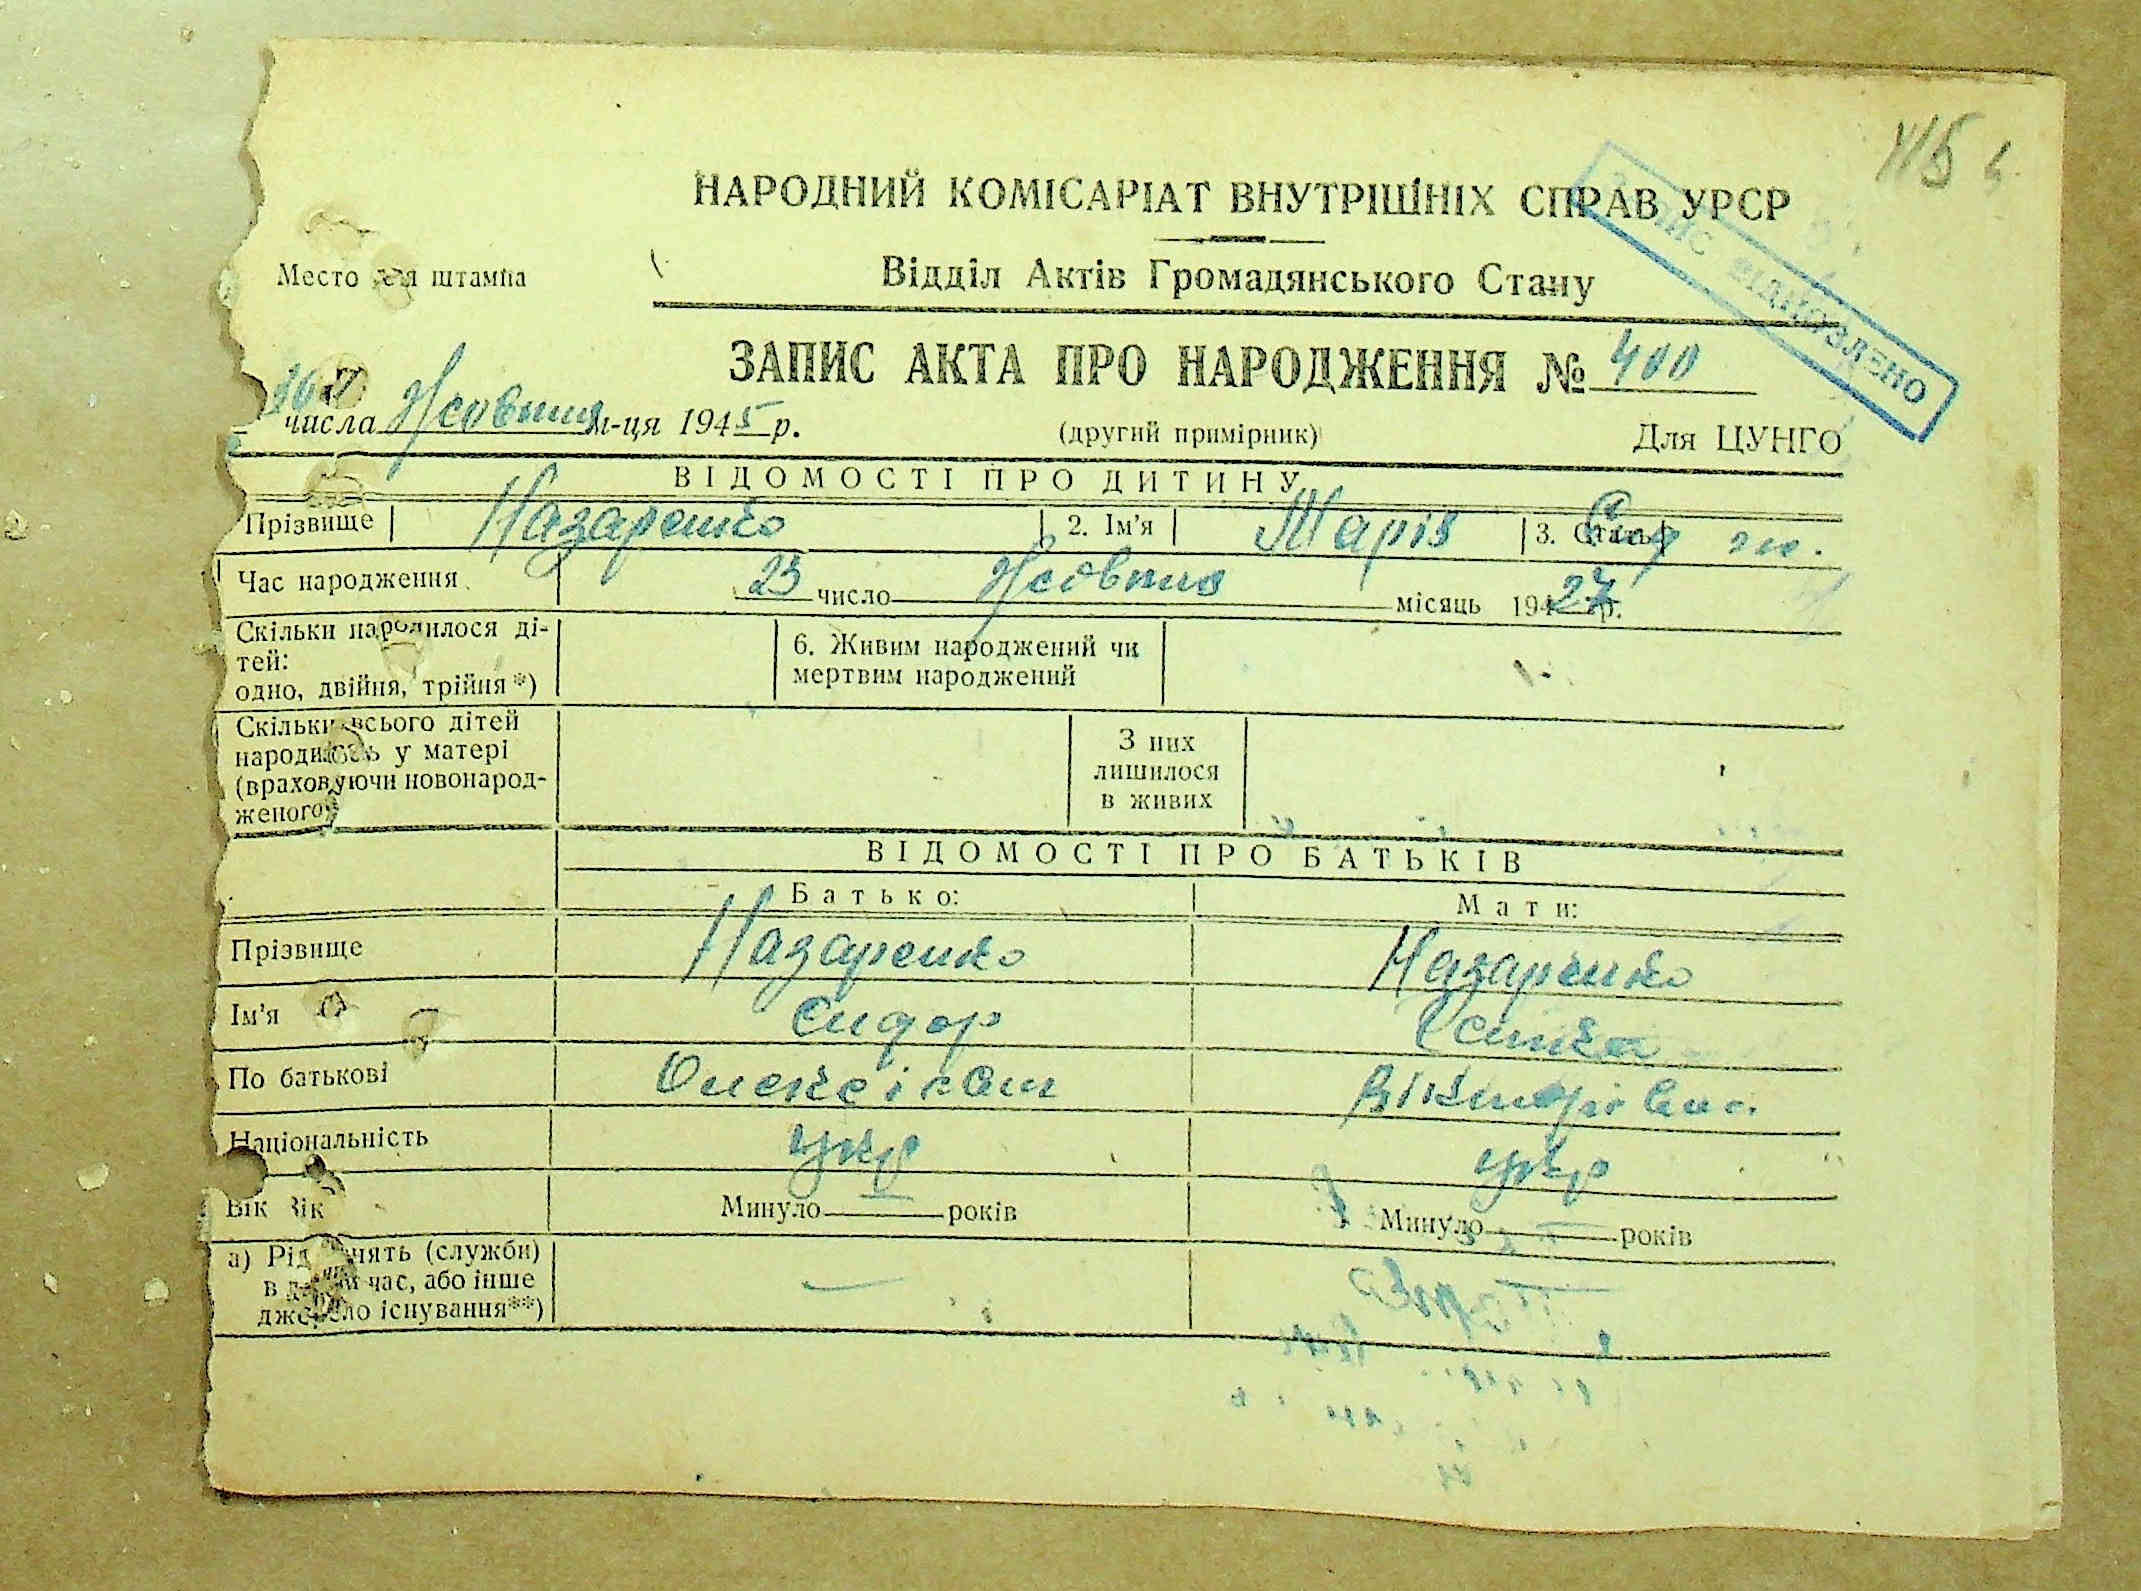 415
НАРОДНИЙ КОМІСАРІАТ ВНУТРІШНІХ СПРАВ УРСР
ЗАПИС ВІДНОВЛЕНО
Место для штампа
Відділ Актів Громадянського Стану
ЗАПИС АКТА ПРО НАРОДЖЕННЯ № 400
числа Жовтня м-ця 1945 р.
(другий примірник)
Для ЦУНГО
ВІДОМОСТІ ПРО ДИТИНУ
Прізвище Назаренко 2. Ім'я Марія 3. Стать ж.
Час народження 23 число Жовтня місяць 194 27 р.
Скільки народилося ді-
тей:
одно, двійня, трійня*)
6. Живим народжений чи
мертвим народжений
Скільки всього дітей
народилось у матері
(враховуючи новонарод-
женого)
З них
лишилося
в живих
ВІДОМОСТІ ПРО БАТЬКІВ
Батько: Мати:
Прізвище Назаренко Назаренко
Ім'я Сидор
По батькові Олексієвич Вікторівна
Національність укр укр
Вік Вік Минуло — років Минуло — років
а) Рід занять (служби)
в даний час, або інше
джерело існування**) —